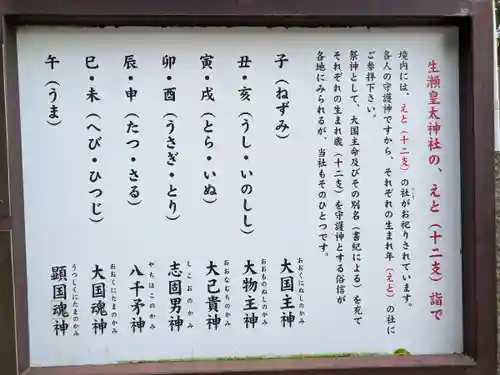 生瀬皇太神社の、えと（十二支）詣で
境内には、えと（十二支）の社がお祀りされています。
やしろ
各人の守護神ですから、それぞれの生まれ年（えと）の社に
ご参拝下さい。
祭神として、大国主命及びその別名（書紀による）を充て
それぞれの生まれ歳（十二支）を守護神とする俗信が
各地にみられるが、当社もそのひとつです。
子（ねずみ）
おおくにぬしのかみ
大国主神
丑・亥（うし・いのしし）
おおものぬしのかみ
大物主神
寅・戌（とら・いぬ）
おおなむちのかみ
大己貴神
卯・酉（うさぎ・とり）
しこおのかみ
志固男神
辰・申（たつ・さる）
やちほこのかみ
八千矛神
巳・未（へび・ひつじ）
おおくにたまのかみ
大国魂神
午（うま）
うつしくにたまのかみ
顕国魂神